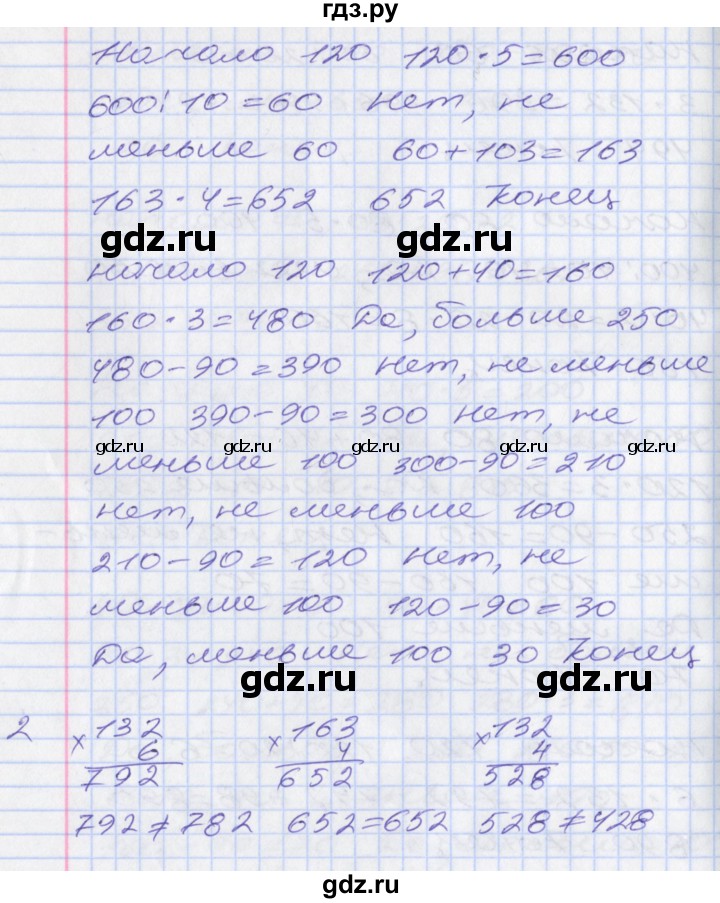 гдз.ру
Начало 120 120·5=600
600:10=60 Нет, не
меньше 60 60+103=163
163·4=652 652 Конец
gdz.ru gdz.ru
Начало 120 120+40=160
160·3=480 Да, больше 250
480-90=390 Нет, не меньше
100 390-90=300 Нет, не
gdz.ru gdz.ru gdz.ru gdz.ru
меньше 100 300-90=210
Нет, не меньше 100
210-90=120 Нет, не
меньше 100 120-90=30
Да, меньше 100 30 Конец
gdz.ru gdz.ru
2 ×132 ×163 ×132
6 4 4
792 652 528
792≠782 652=652 528≠428
gdz.ru